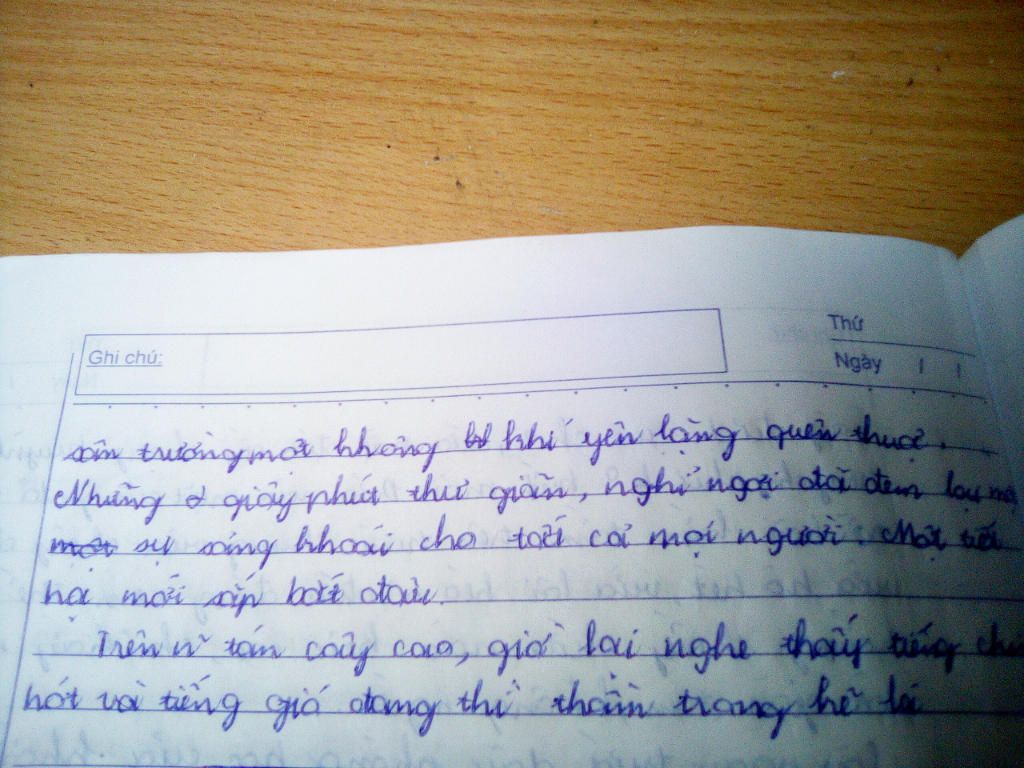 Thứ
Ghi chú:
Ngày / /
sân trường một không khí yên lặng quen thuộc.
Những giây phút thư giãn, nghỉ ngơi đã đem lại một
sự sảng khoái cho tất cả mọi người. Một tiết
học mới sắp bắt đầu.
Trên tán cây cao, giờ lại nghe thấy tiếng chim
hót và tiếng gió đang thì thầm trong kẽ lá